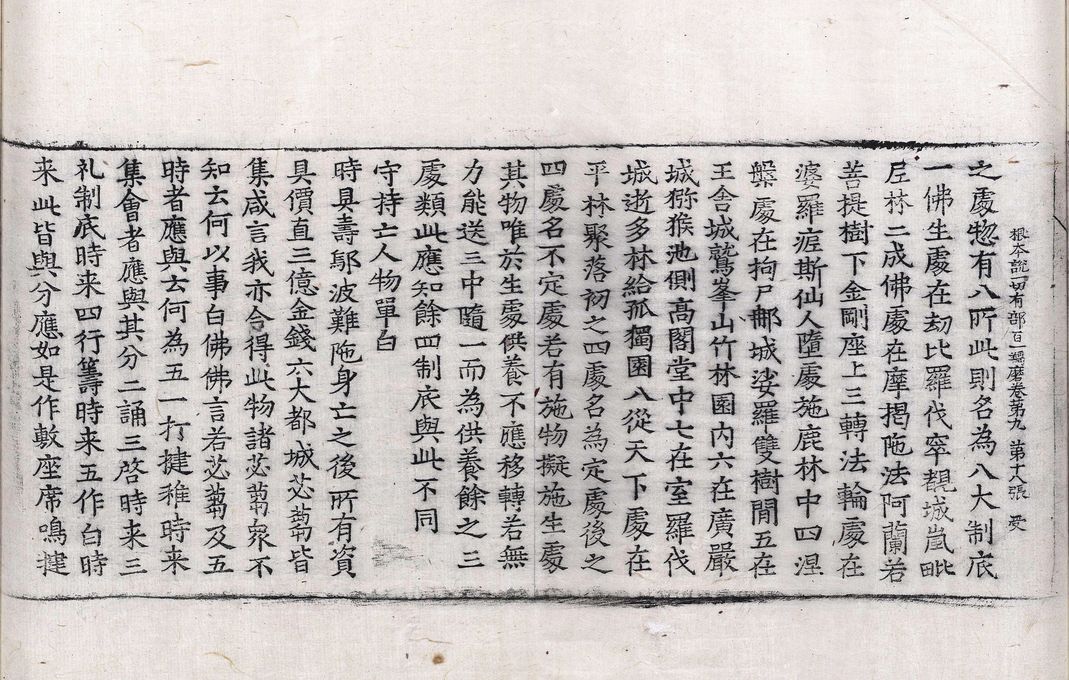 根本說一切有部百一羯磨卷第九 第十八張 受
之處惣有八所此則名為八大制底
一佛生處在劫比羅伐窣覩城嵐毗
尼林二成佛處在摩揭陁法阿蘭若
菩提樹下金剛座上三轉法輪處在
婆羅痆斯仙人墮處施鹿林中四涅
槃處在拘尸郍城娑羅雙樹閒五在
王舍城鷲峯山竹林園内六在廣嚴
城猕猴池側高閣堂中七在室羅伐
城逝多林給孤獨園八從天下處在
平林聚落初之四處名為定處後之
四處名不定處若有施物擬施生處
其物唯於生處供養不應移轉若無
力能送三中隨一而為供養餘之三
處類此應知餘四制底與此不同
守持亡人物單白
時具壽鄔波難陁身亡之後所有資
具價直三億金錢六大都城苾蒭皆
集咸言我亦合得此物諸苾蒭衆不
知云何以事白佛佛言若苾蒭及五
時者應與云何為五一打揵稚時来
集會者應與其分二誦三啓時来三
礼制底時来四行籌時来五作白時
来此皆與分應如是作敷座席鳴揵